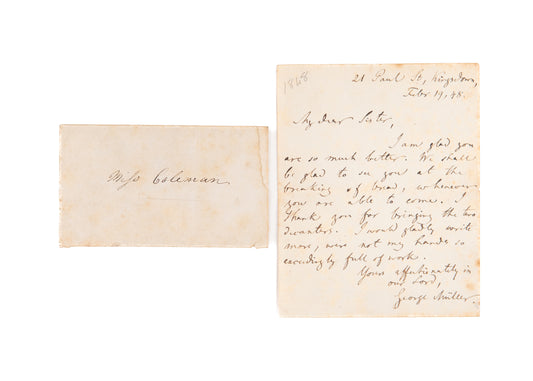 Miss Coleman.
1848
21 Paul St, Kingsdown,
Febr 19, 48.
My dear Sister,
I am glad you
are so much better. We shall
be glad to see you at the
breaking of bread, whenever
you are able to come. I
thank you for bringing the two
decanters. I would gladly write
more, were not my hands so
exceedingly full of work.
Yours affectionately in
our Lord,
George Müller.